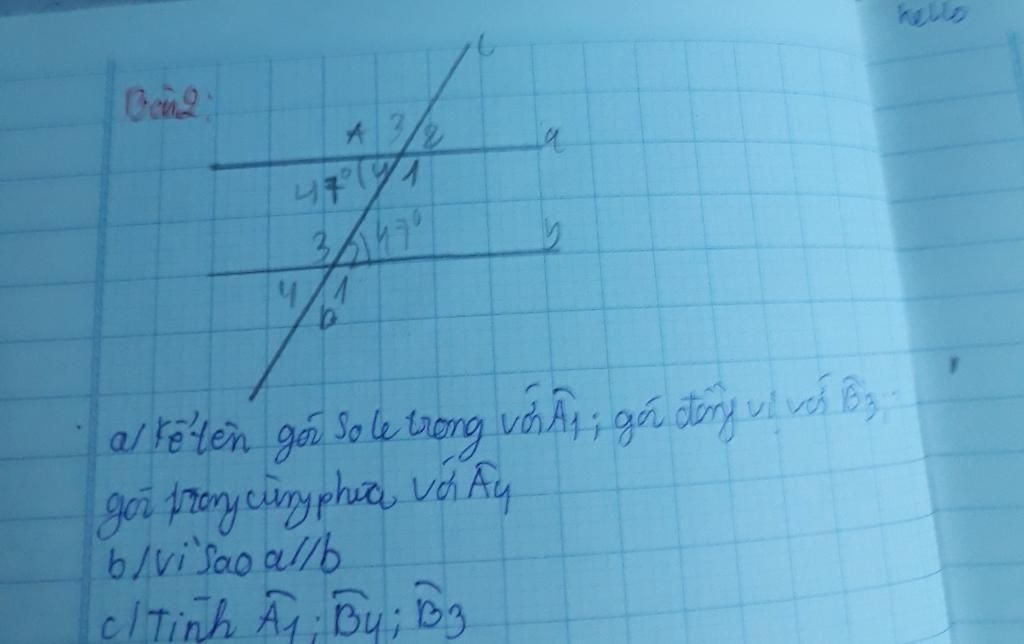 hello
Bài 2:
c
A 3 2 a
47° 4 1
3 2 47° b
4 1
B
a/ Kể tên góc so le trong với Â1; góc đồng vị với B̂3;
góc trong cùng phía với Â4
b/ Vì sao a//b
c/ Tính Â1; B̂4; B̂3